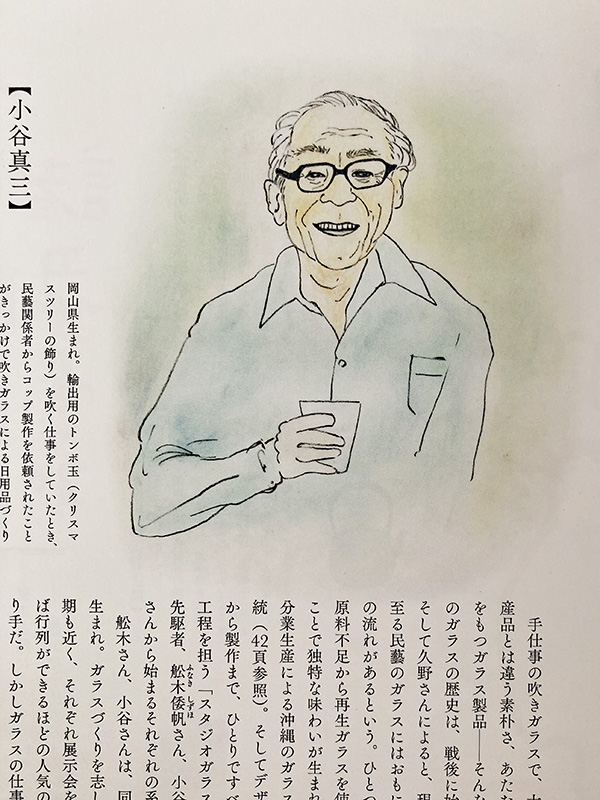 【小谷真三】
岡山県生まれ。輸出用のトンボ玉（クリスマ
スツリーの飾り）を吹く仕事をしていたとき、
民藝関係者からコップ製作を依頼されたこと
がきっかけで吹きガラスによる日用品づくり
手仕事の吹きガラスで、
産品とは違う素朴さ、あた
をもつガラス製品――そん
のガラスの歴史は、戦後に
そして久野さんによると、
至る民藝のガラスにはおもに
の流れがあるという。ひとつ
原料不足から再生ガラスを使
ことで独特な味わいが生まれ
分業生産による沖縄のガラス
統（42頁参照）。そしてデザ
から製作まで、ひとりですべ
工程を担う「スタジオガラス
先駆者、舩木倭帆さん、小谷
ふなき しずほ
さんから始まるそれぞれの系
舩木さん、小谷さんは、同
生まれ。ガラスづくりを志し
期も近く、それぞれ展示会を
ば行列ができるほどの人気の
り手だ。しかしガラスの仕事